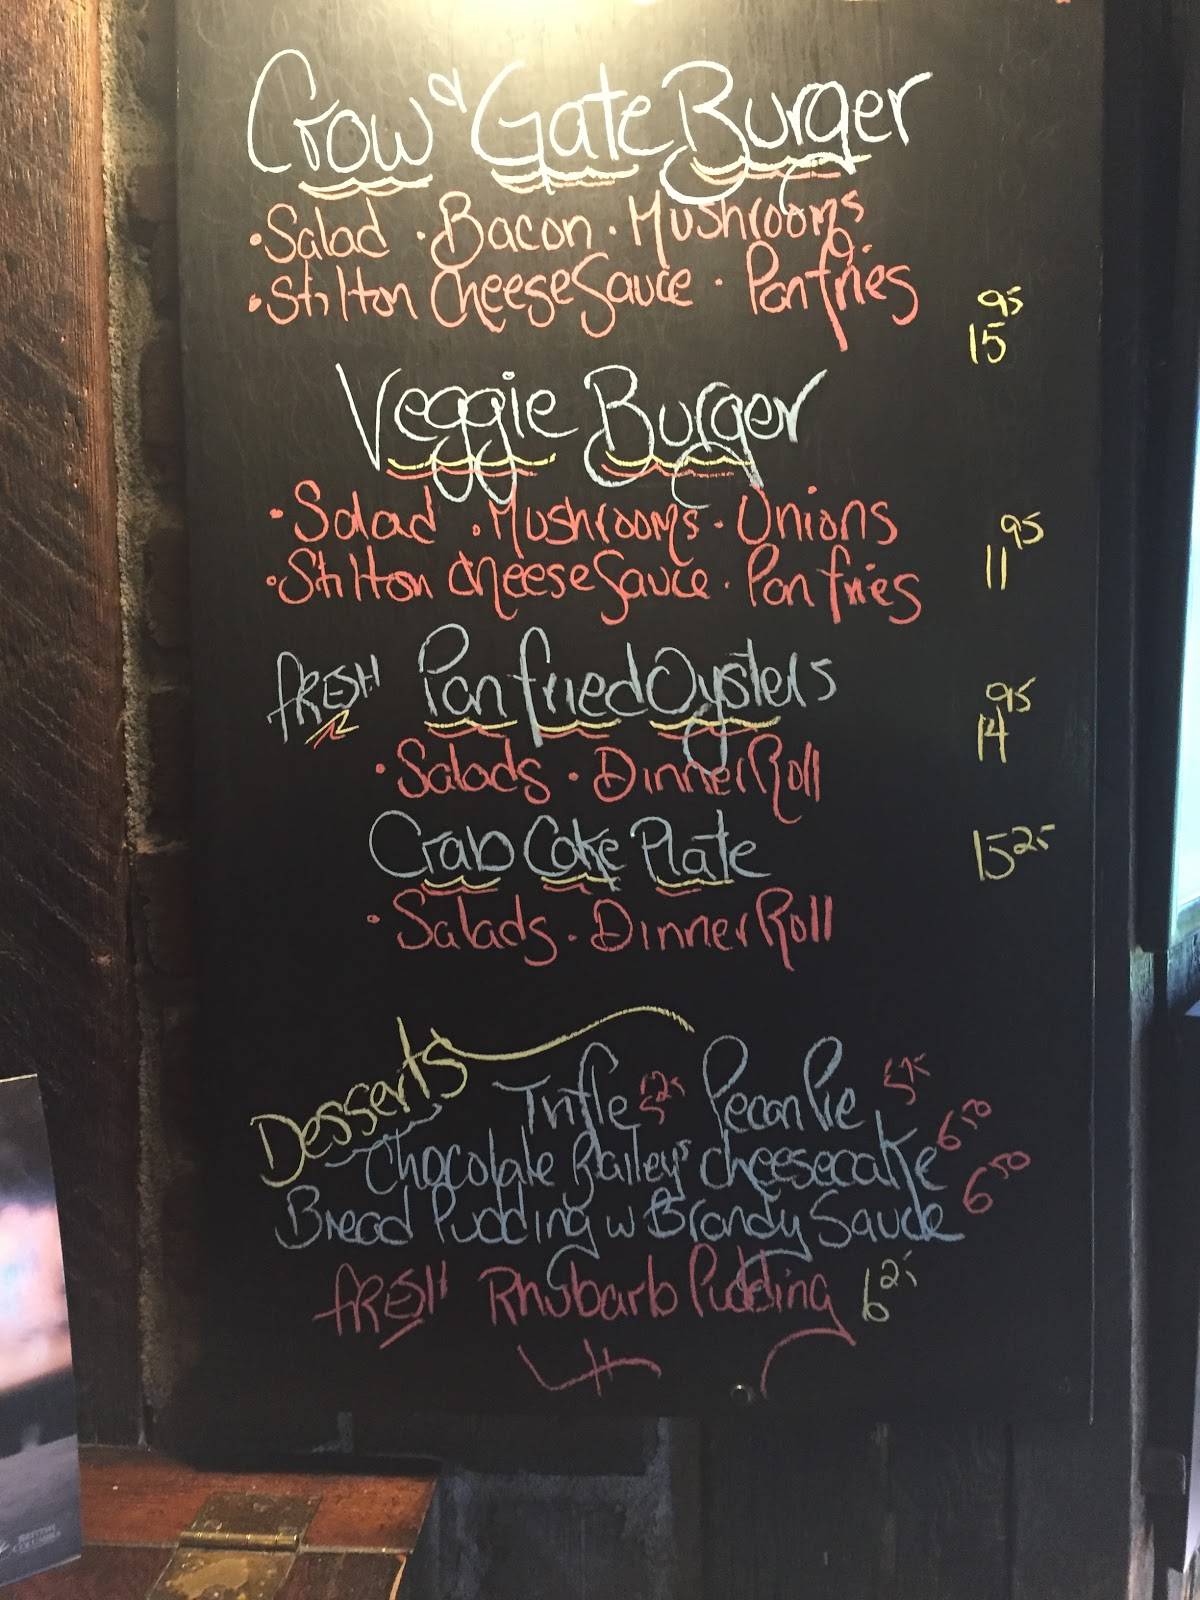 Crow & Gate Burger
• Salad • Bacon • Mushrooms
• Stilton Cheese Sauce • Pan fries
15 95
Veggie Burger
• Salad • Mushrooms • Onions
• Stilton Cheese Sauce • Pan fries
11 95
fRESH Pan fried Oysters 14 95
• Salads • Dinner Roll
Crab Cake Plate 15 25
• Salads • Dinner Roll
Desserts
Trifle 5 25 Pecan Pie 5 75
Chocolate Bailey's cheesecake 6 50
Bread Pudding w Brandy Sauce 6 50
fRESH Rhubarb Pudding 6 25
BRITISH
COLUMBIA